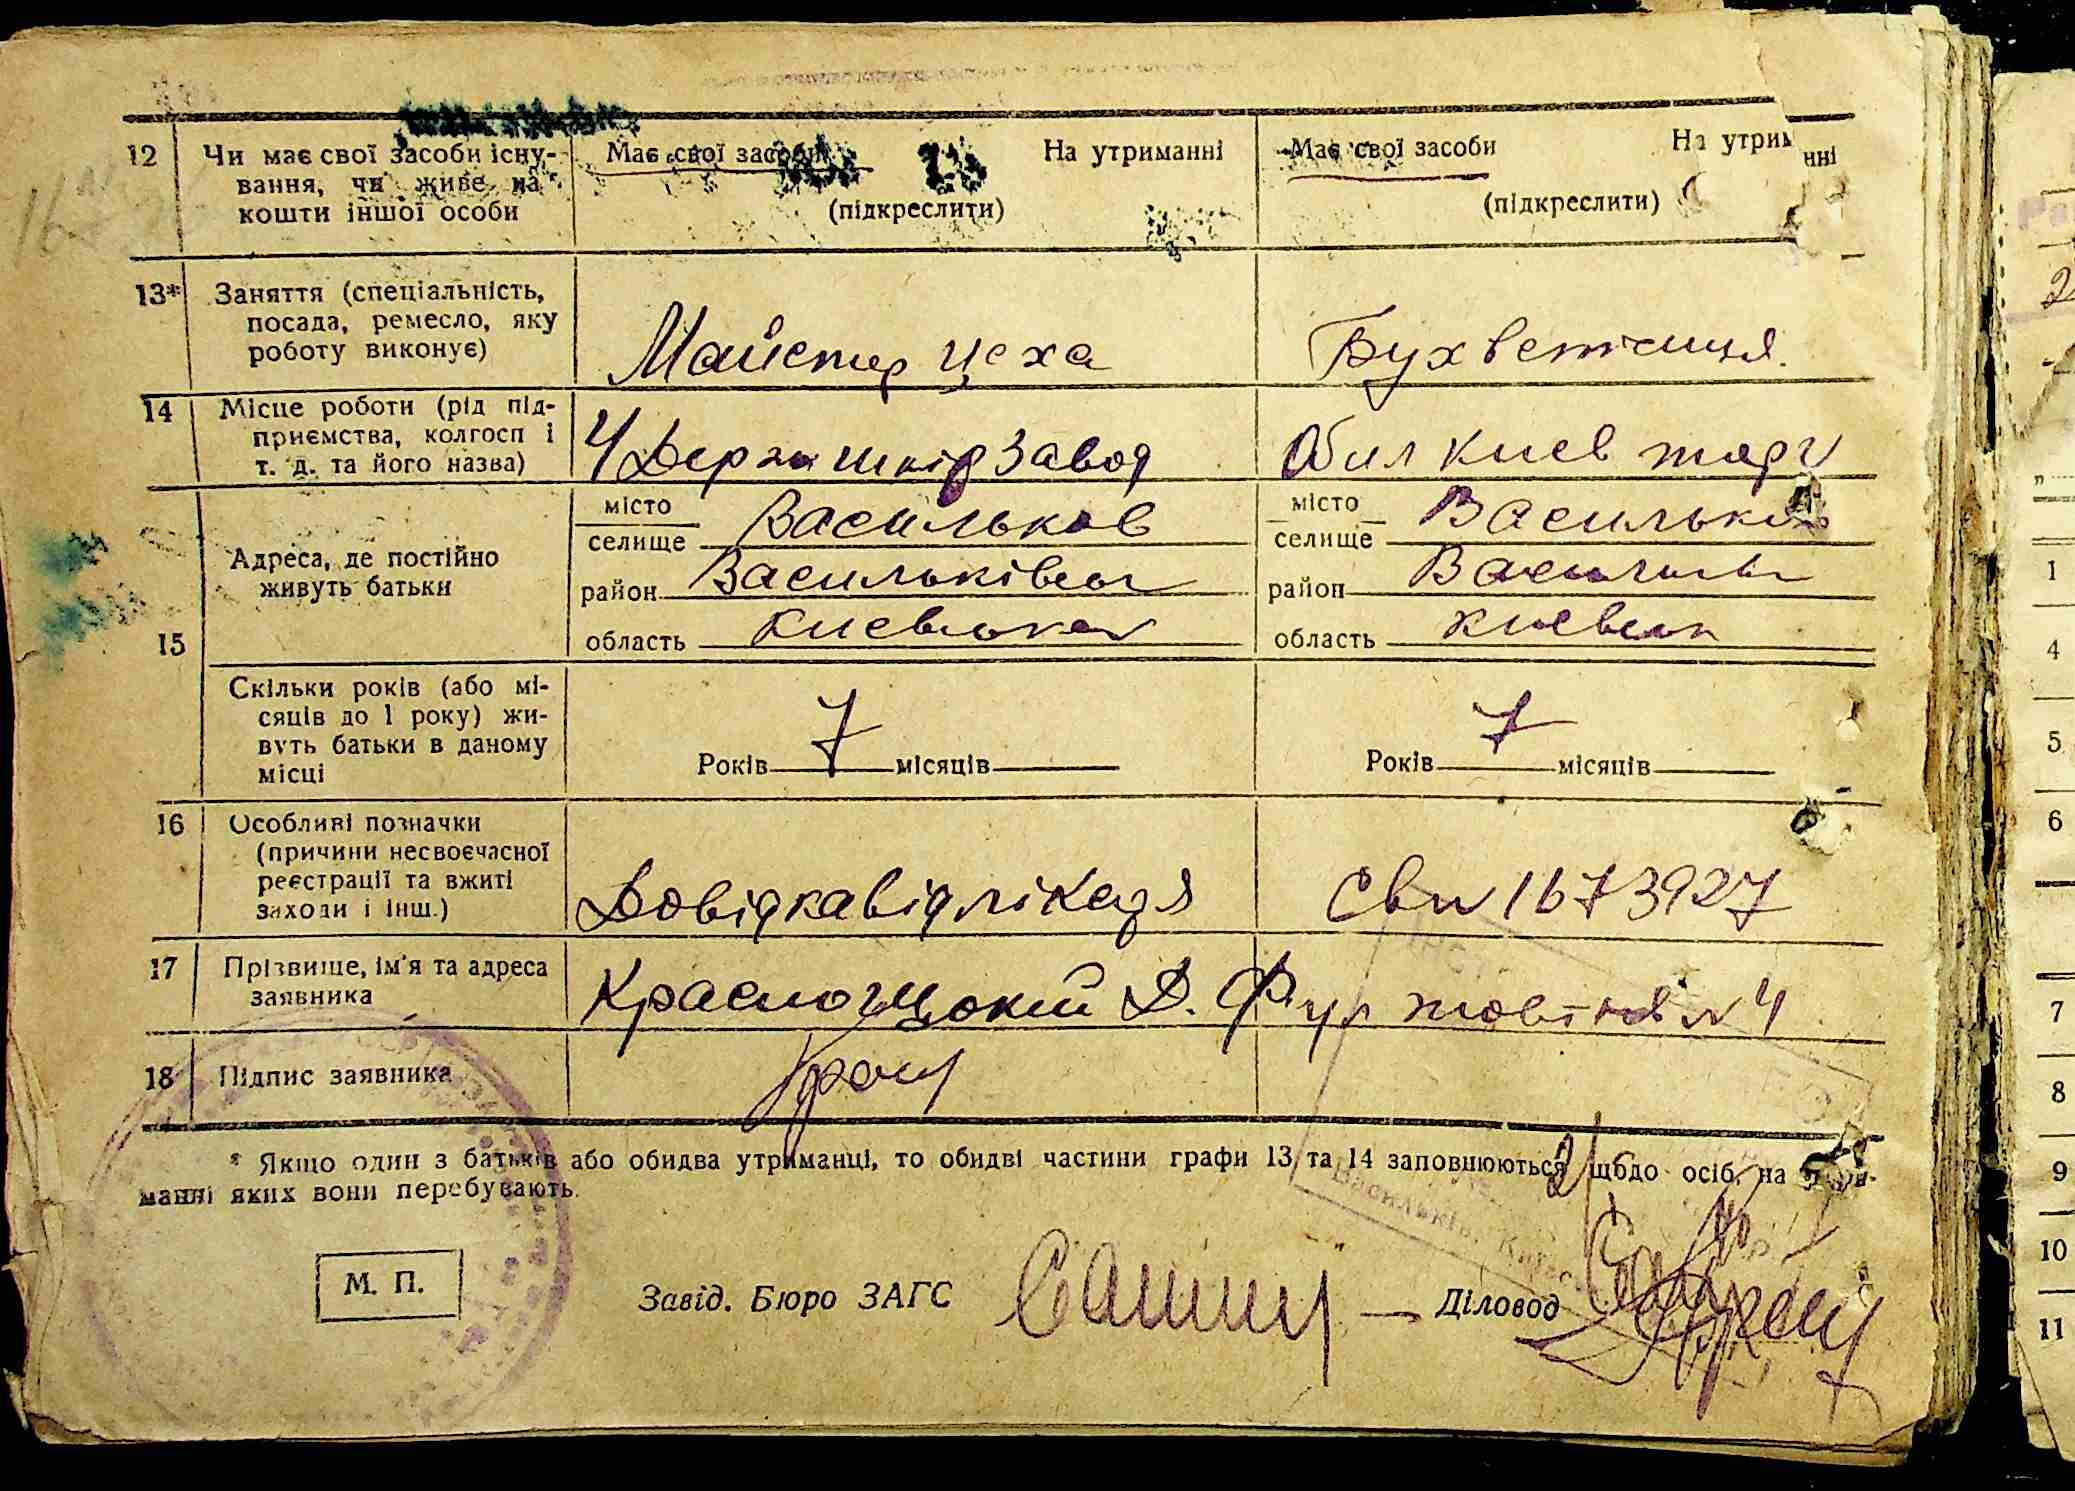 12 Чи має свої засоби існу- Має свої засоби На утриманні Має свої засоби На утриманні
вання, чи живе на
кошти іншої особи (підкреслити) (підкреслити)
13* Заняття (спеціальність,
посада, ремесло, яку
роботу виконує) Майстер цеха Бух
14 Місце роботи (рід під-
приємства, колгосп і
т. д. та його назва) 4 Держ шкір завод Обл Киев торг
місто Васильков місто Васильков
селище селище
Адреса, де постійно
живуть батьки район Васильківськ район
15 область Киевська область Киевськ
Скільки років (або мі-
сяців до 1 року) жи-
вуть батьки в даному
місці Років 7 місяців Років 7 місяців
16 Особливі позначки
(причини несвоєчасної
реєстрації та вжиті
заходи і інш.) Довідка від лікаря 1673927
17 Прізвище, ім'я та адреса
заявника Д. Ф. ул 4
18 Підпис заявника
* Якщо один з батьків або обидва утриманці, то обидві частини графи 13 та 14 заповнюються щодо осіб, на утри-
манні яких вони перебувають.
М. П. Завід. Бюро ЗАГС Діловод
1
4
5
6
7
8
9
10
11